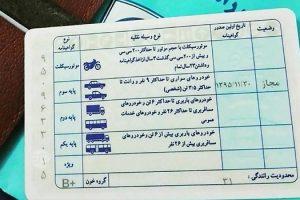 وضعیت
تاریخ اولین صدور گواهینامه
نوع وسیله نقلیه
نوع گواهینامه
موتورسیکلت با حجم موتور تا حداکثر ۲۰۰ سی سی
و بیش از ۲۰۰ سی سی
موتورسیکلت
مجاز
۱۳۹۵/۱۱/۳۰
خودروهای سواری تا حداکثر ۹ نفر و وانت تا
حداکثر ۳/۵ تن (شخصی)
پایه سوم
خودروهای باربری تا حداکثر ۶ تن و خودروهای
مسافربری تا حداکثر ۲۶ نفر و خودروهای خدمات
عمومی
پایه دوم
خودروهای باربری بیش از ۶ تن و خودروهای
مسافربری بیش از ۲۶ نفر
پایه یکم
ویژه
محدودیت رانندگی :
۳۱
گروه خون
B+